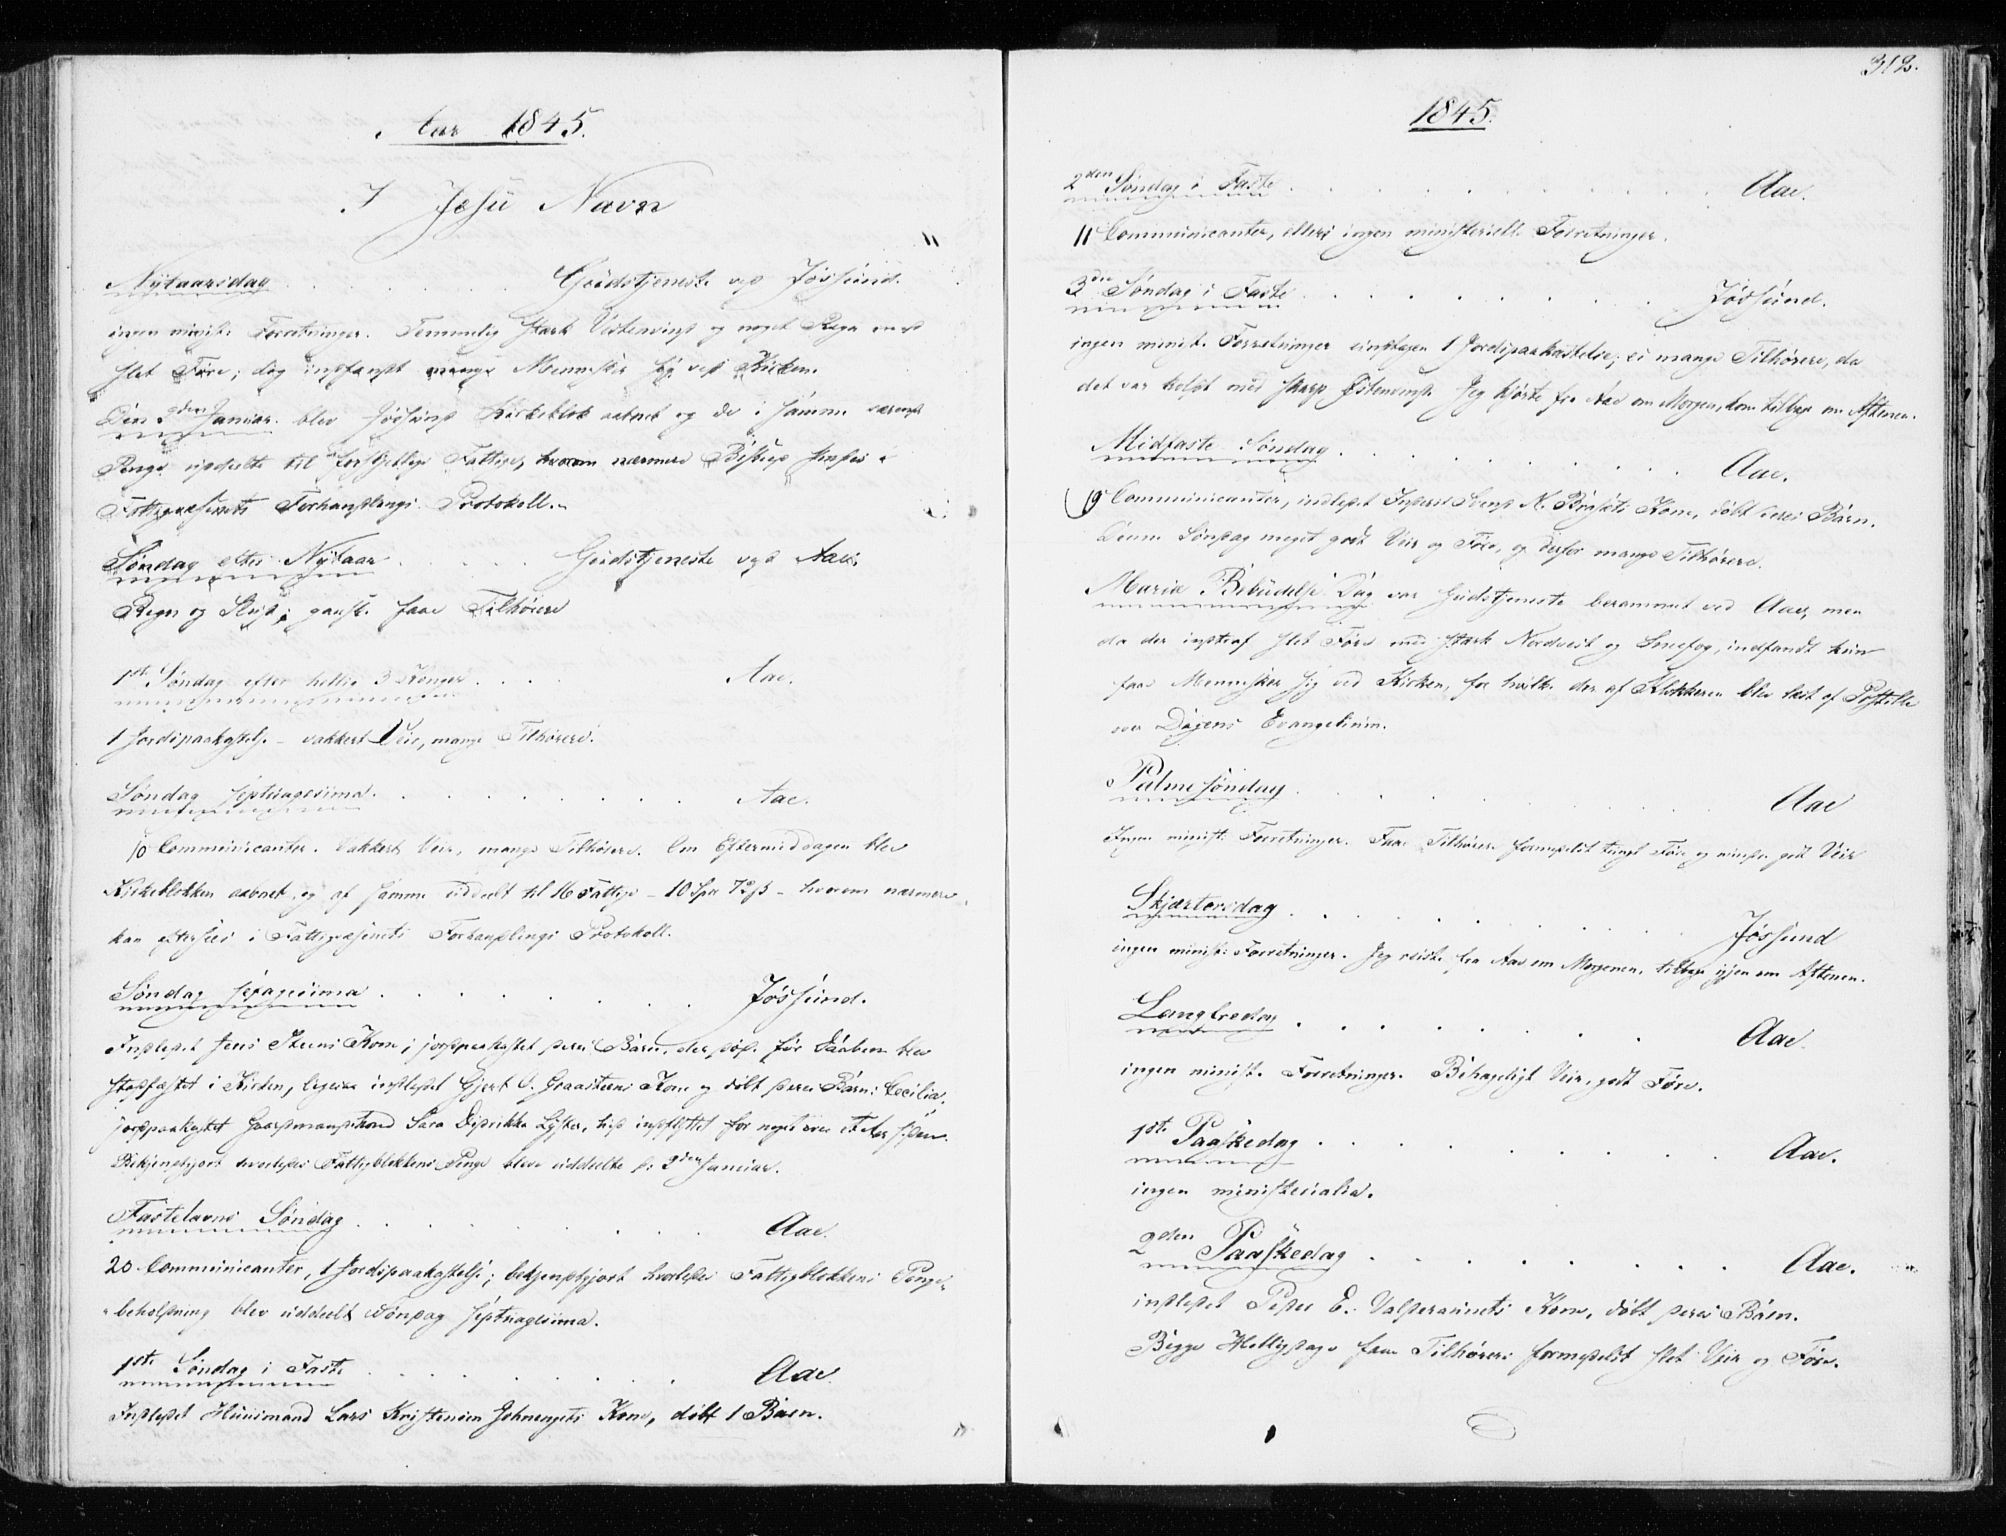 Aar 1845.
I Jesu Navn
Nytaarsdag . . . . . . Gudstjeneste ved Jøssund.
ingen minist: Forretninger. Temmelig stærk Vestenvind og noget Regn med
slet Føre; dog indfandt mange Mennesker sig ved Kirken.
Den 2den Januar blev Jøssund Kirkeblok aabnet og de i samme værende
Penge uddeelte til forskjellige Fattige, hvorom nærmere
Fattigvæsenets Forhandlings Protokoll.
Søndag efter Nytaar . . . . . Gudstjeneste ved Aae.
Regn og Slud; ganske faae Tilhørere
1ste Søndag efter hellig 3 Konger . . . . Aae.
1 Jordspaakastelse - vakkert Veir, mange Tilhørere.
Søndag septuagesima . . . . . . . Aae.
10 Communicanter. Vakkert Veir, mange Tilhørere. Om Eftermiddagen blev
Kirkeblokken aabnet og af samme uddeelt til 16 Fattige - 10 Spd 72 ß - hvorom nærmere
kan eftersees i Fattigvæsenets Forhandlings Protokoll.
Søndag sexagesima . . . . . . . Jøssund.
Indledet Jens Steens Kone, jordpaakastet deres Barn, der døde før Daaben blev
stadfæstet i Kirken, ligesaa indledet Gjert O. Graasteens Kone og døbt deres Barn: Cecilia.
jordpaakastet Gaardmandskone Sara Lyster, for noget over et Aar siden.
Bekjendtgjort hvorledes Fattigblokkens Penge bleve uddeelte d: 2den Januar.
Fastelavns Søndag . . . . . . . Aae.
20 Communicanter, 1 Jordspaakastelse; bekjendtgjort hvorledes Fattigblokkens Penge-
beholdning blev uddeelt Søndag septuagesima.
1ste Søndag i Faste . . . . . . . Aae.
Indledet Huusmand Lars Kristensen Johnengets Kone, døbt 1 Barn.
312.
1845.
2den Søndag i Faste . . . . . . . Aae.
11 Communicanter, ellers ingen ministerielle Forretninger.
3die Søndag i Faste . . . . . . . Jøssund.
ingen minist. Forretninger undtagen 1 Jordspaakastelse; ei mange Tilhørere, da
det var koldt med skarp Østenvind. Jeg kjørte fra Aae om Morgen, kom tilbage om Aftenen.
Midfaste Søndag . . . . . . . Aae.
19 Communicanter, indledet Inderst N. Kone, døbt deres Barn.
Denne Søndag meget godt Veir og Føre, og derfor mange Tilhørere.
Mariæ Bebudelses Dag var Gudstjeneste berammet ved Aae, men
da der indtraf slet Føre med stærk Nordvest og Snefog, indfandt kun
faae Mennesker sig ved Kirken, for hvilke der af Klokkeren blev læst af Postille
over Dagens Evangelium.
Palmesøndag . . . . . . . Aae
Ingen minist. Forretninger. Faae Tilhørere formedelst tungt Føre og mindre godt Veir
Skjærtorsdag . . . . . . . Jøssund
ingen minist: Forretninger. Jeg reiste fra Aae om Morgenen, tilbage igjen om Aftenen.
Langfredag . . . . . . . Aae.
ingen minist. Forretninger. Behageligt Veir, godt Føre.
1ste Paaskedag . . . . . . . Aae.
ingen ministerialia.
2den Paaskedag . . . . . . . Aae.
indledet Peder E. Valseraunets Kone, døbt deres Barn.
Begge Helligdage faae Tilhørere formedelst slet Veir og Føre.